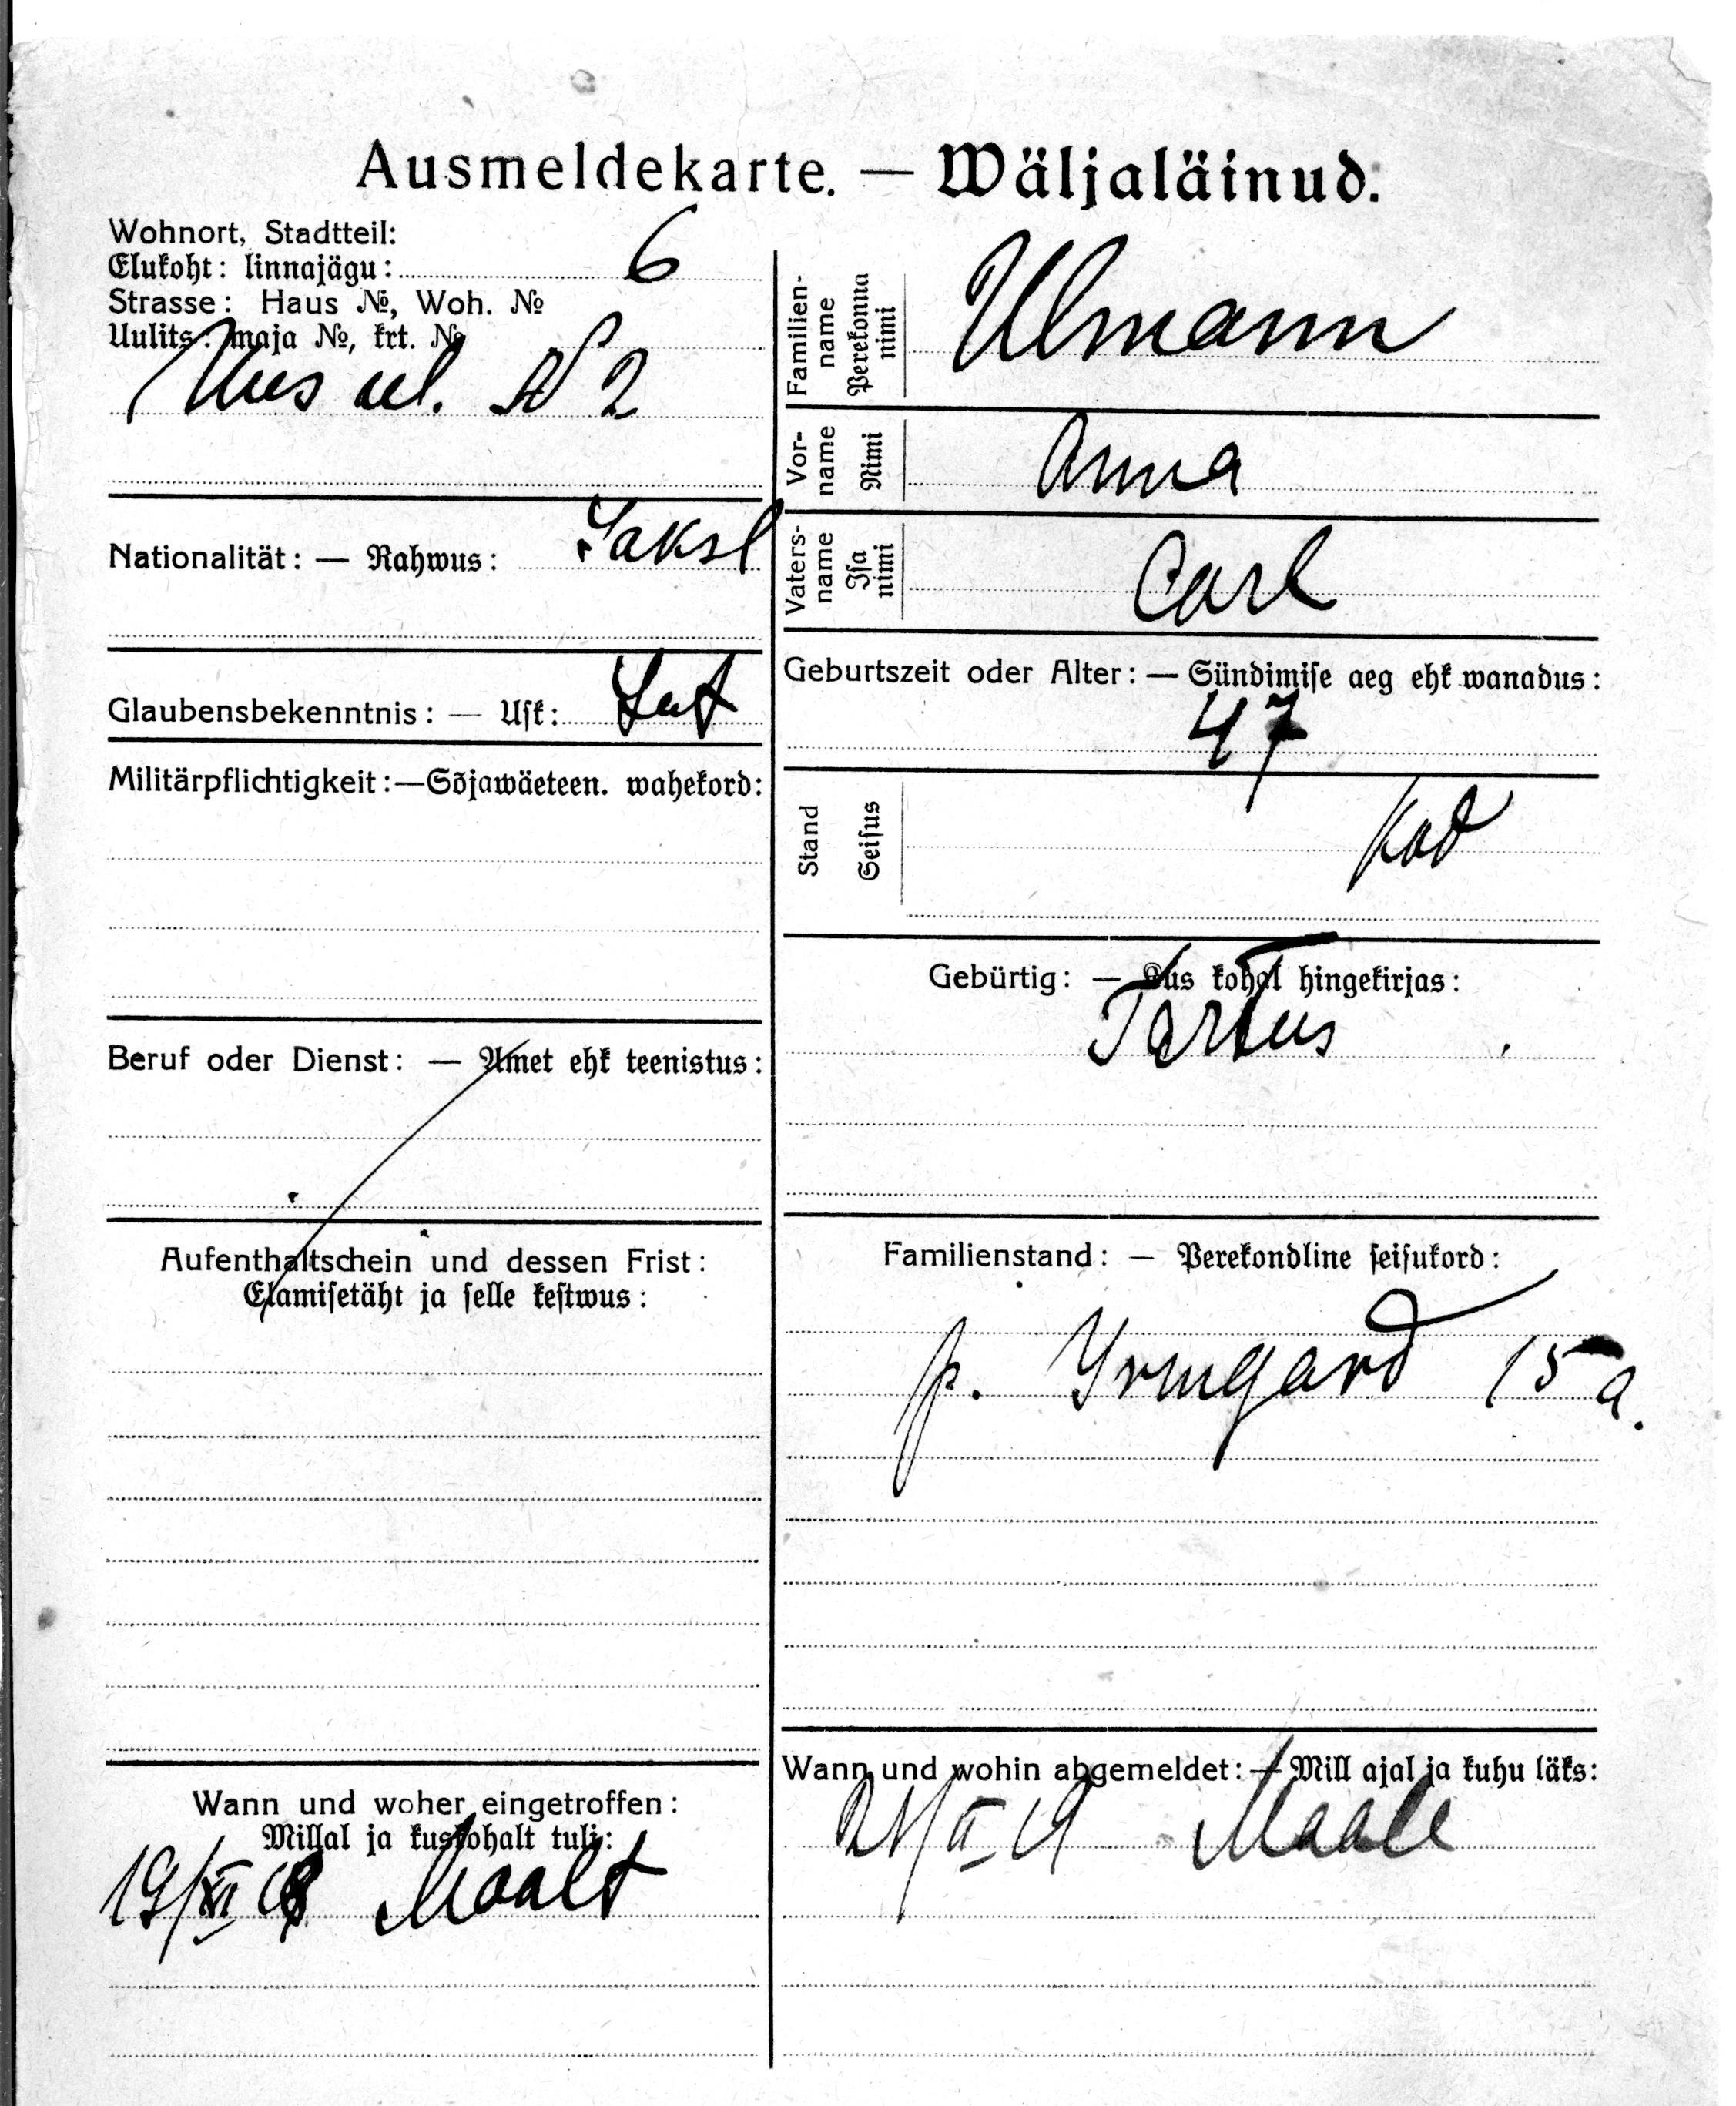 Ausmeldekarte. — Wäljaläinud.
Wohnort, Stadtteil:
Elukoht: linnajägu: 6
Strasse: Haus №, Woh. №
Uulits: maja №, krt. №
Uus ul. № 2
Nationalität: — Rahwus: Saksl
Glaubensbekenntnis: — Usk: Lut
Militärpflichtigkeit: — Sõjawäeteen. wahekord:
Beruf oder Dienst: — Amet ehk teenistus:
Aufenthaltschein und dessen Frist:
Elamisetäht ja selle kestwus:
Wann und woher eingetroffen:
Millal ja kust kohalt tuli:
19/XII 18 Maalt
Familien-
name
Perekonna
nimi
Ulmann
Vor-
name
Nimi
Anna
Vaters-
name
Isa
nimi
Carl
Geburtszeit oder Alter: — Sündimise aeg ehk wanadus:
47
Stand
Seisus
Kod
Gebürtig: — Kus kohal hingekirjas:
Tartus
Familienstand: — Perekondline seisukord:
p. Irmgard 15 a.
Wann und wohin abgemeldet: — Mill ajal ja kuhu läks:
21/II 19 Maale